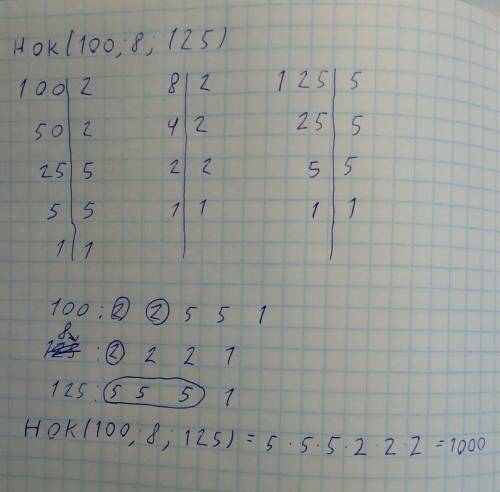 НОК(100; 8; 125)
100 | 2 8 | 2 125 | 5
50 | 2 4 | 2 25 | 5
25 | 5 2 | 2 5 | 5
5 | 5 1 | 1 1 | 1
1 | 1
100: 2 2 5 5 1
8 : 2 2 2 1
125: 5 5 5 1
НОК(100; 8; 125) = 5 · 5 · 5 · 2 · 2 · 2 = 1000